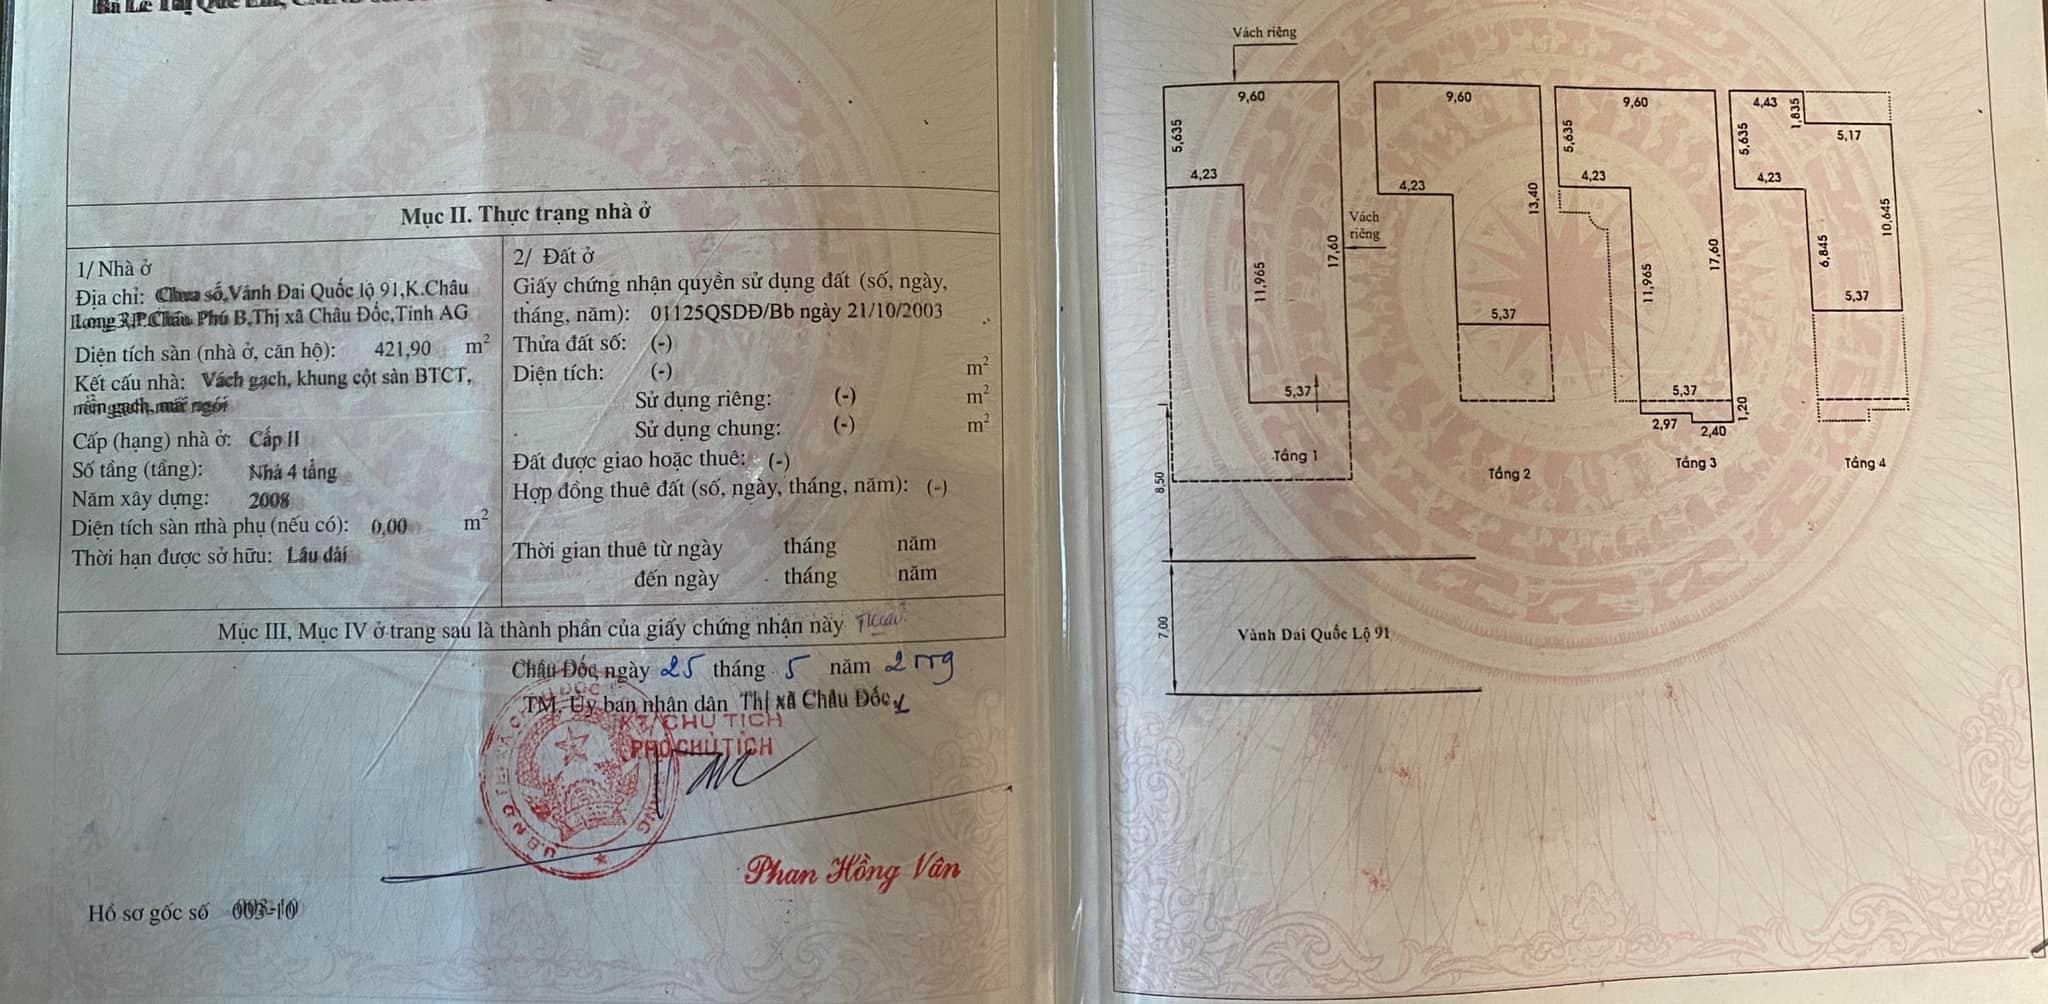 Bà Lê Thị
Mục II. Thực trạng nhà ở
1/ Nhà ở
Địa chỉ: Chưa số,Vành Đai Quốc lộ 91,K.Châu
Long 3,P.Châu Phú B,Thị xã Châu Đốc,Tỉnh AG
Diện tích sàn (nhà ở, căn hộ): 421,90 m²
Kết cấu nhà: Vách gạch, khung cột sàn BTCT,
nền gạch, mái ngói
Cấp (hạng) nhà ở: Cấp II
Số tầng (tầng): Nhà 4 tầng
Năm xây dựng: 2008
Diện tích sàn nhà phụ (nếu có): 0,00 m²
Thời hạn được sở hữu: Lâu dài
2/ Đất ở
Giấy chứng nhận quyền sử dụng đất (số, ngày,
tháng, năm): 01125QSDĐ/Bb ngày 21/10/2003
Thửa đất số: (-)
Diện tích: (-) m²
Sử dụng riêng: (-) m²
Sử dụng chung: (-) m²
Đất được giao hoặc thuê: (-)
Hợp đồng thuê đất (số, ngày, tháng, năm): (-)
Thời gian thuê từ ngày tháng năm
đến ngày tháng năm
Mục III, Mục IV ở trang sau là thành phần của giấy chứng nhận này
Châu Đốc, ngày 25 tháng 5 năm 2009
TM, Ủy ban nhân dân Thị xã Châu Đốc
KT/CHỦ TỊCH
PHÓ CHỦ TỊCH
Phan Hồng Vân
Hồ sơ gốc số 003-10
Vách riêng
9,60
5,635
4,23
11,965
17,60
5,37
Tầng 1
Vách
riêng
9,60
4,23
13,40
5,37
Tầng 2
9,60
5,635
4,23
11,965
17,60
5,37
2,97
2,40
1,20
Tầng 3
4,43
1,835
5,17
5,635
4,23
6,845
10,645
5,37
Tầng 4
8,50
7,00
Vành Dai Quốc Lộ 91